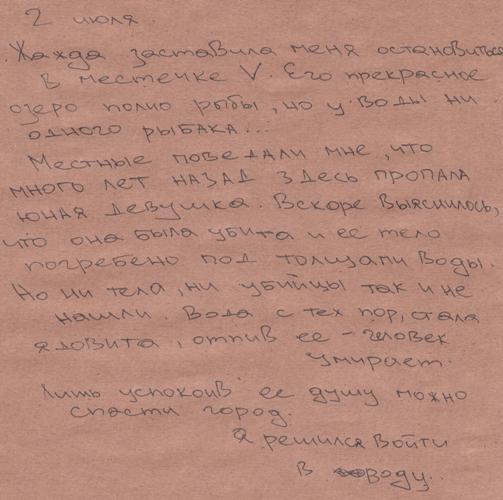 2 июля.
Жажда заставила меня остановиться
в местечке V. Его прекрасное
озеро полно рыбы, но у воды ни
одного рыбака...
Местные поведали мне, что
много лет назад здесь пропала
юная девушка. Вскоре выяснилось,
что она была убита и ее тело
погребено под толщами воды.
Но ни тела, ни убийцы так и не
нашли. Вода с тех пор, стала
ядовита, отпив ее - человек
умирает.
Лишь успокоив ее душу можно
спасти город.
Я решился войти
в воду..